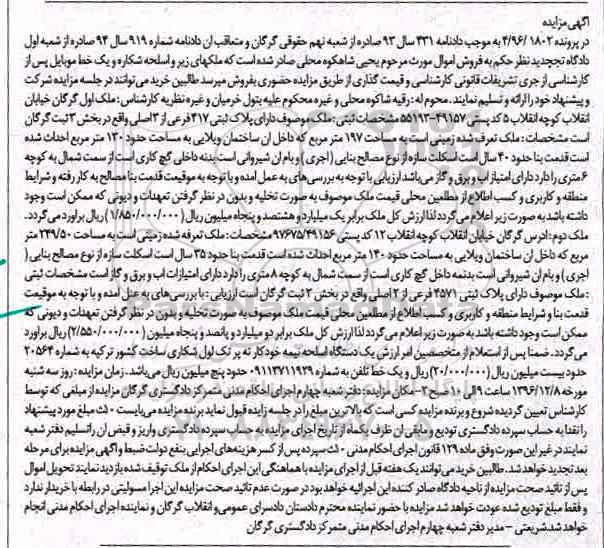 آگهی مزایده
در پرونده ۱۸۰۲ /۴/۹۶ به موجب دادنامه ۳۳۱ سال ۹۳ صادره از شعبه نهم حقوقی گرگان و متعاقب ان دادنامه شماره ۹۱۹ سال ۹۴ صادره از شعبه اول
دادگاه تجدید نظر حکم به فروش اموال مورث مرحوم یحیی شاهکوه محلی صادر شده است که ملکهای زیر و اسلحه شکاره و یک خط موبایل پس از
کارشناسی از جری تشریفات قانونی کارشناسی و قیمت گذاری از طریق مزایده حضوری بفروش میرسد طالبین خرید می توانند در جلسه مزایده شرکت
و پیشنهاد خود را ارائه و تسلیم نمایند. محوم له : رقیه شاکوه محلی و غیره محکوم علیه بتول خرمیان و غیره نظریه کارشناس : ملک اول گرگان خیابان
انقلاب کوچه انقلاب ۵ کد پستی ۴۹۱۵۷-۵۵۱۹۳ مشخصات ثبتی : ملک موصوف دارای پلاک ثبتی ۴۱۷ فرعی از ۳ اصلی واقع در بخش ۲ ثبت گرگان
است مشخصات : ملک تعرفه شده زمینی است به مساحت ۱۹۷ متر مربع که داخل ان ساختمان ویلایی به مساحت حدود ۱۳۰ متر مربع احداث شده
است قدمت بنا حدود ۴۰ سال است اسکلت سازه از نوع مصالح بنایی ( اجری ) و بام ان شیروانی است بدنه داخلی گچ کاری است از سمت شمال به کوچه
۶ متری را دارد دارای امتیاز اب و برق و گاز می باشد ارزیابی با توجه به بررسی های به عمل امده و با توجه به موقعیت قدمت بنا مصالح به کار رفته و شرایط
منطقه و کاربری و کسب اطلاع از مطلعین محلی قیمت ملک موصوف به صورت تخلیه و بدون در نظر گرفتن تعهدات و دیونی که ممکن است وجود
داشته باشد به صورت زیر اعلام می گردد لذا ارزش کل ملک برابر یک میلیارد و هشتصد و پنجاه میلیون ریال (۱/۸۵۰/۰۰۰/۰۰۰) ریال براورد می گردد.
ملک دوم : ادرس گرگان خیابان انقلاب کوچه انقلاب ۱۲ کد پستی ۹۷۶۷۵/۴۹۱۵۶ مشخصات : ملک تعرفه شده زمینی است به مساحت ۲۴۹/۵۰ متر
مربع که داخل ان ساختمان ویلایی به مساحت حدود ۱۴۰ متر مربع احداث شده است قدمت بنا حدود ۳۵ سال است اسکلت سازه از نوع مصالح بنایی (
اجری ) و بام ان شیروانی است بدنمه داخل گچ کاری است از سمت شمال به کوچه ۸ متری را دارد دارای امتیازات اب و برق و گاز است مشخصات ثبتی
: ملک موصوف دارای پلاک ثبتی ۴۵۷۱ فرعی از ۲ اصلی واقع در بخش ۲ ثبت گرگان است ارزیابی : با بررسی های به عمل امده و با توجه به موقعیت
قدمت بنا و شرایط منطقه و کاربری و کسب اطلاع از مطلعین محلی قیمت ملک موصوف به صورت تخلیه و بدون در نظر گرفتن تعهدات و دیونی که
ممکن است وجود داشته باشد به صورت زیر اعلام می گردد لذا ارزش کل ملک برابر دو میلیارد و پانصد و پنجاه میلیون (۲/۵۵۰/۰۰۰/۰۰۰) ریال براورد
می گردد. ضمنا پس از استعلام از متخصصین امر ارزش یک دستگاه اسلحه نیمه خودکار ته پر تک لول شکاری ساخت کشور ترکیه به شماره ۲۰۵۶۴
حدود بیست میلیون ریال (۲۰/۰۰۰/۰۰۰) ریال و یک خط تلفن به شماره ۰۹۱۱۳۷۱۱۹۳۹ حدود پنج میلیون ریال می باشد. زمان مزایده : روز سه شنبه
مورخه ۱۳۹۶/۱۲/۸ ساعت ۹ الی ۱۰ صبح ۲- مکان مزایده : دفتر شعبه چهارم اجرای احکام مدنی متمرکز دادگستری گرگان مزایده از مبلغی که توسط
کارشناس تعیین گردیده شروع و برنده مزایده کسی است که بالاترین مبلغ را در جلسه زایده قبول نماید برنده مزایده می بایست ۵۰٪ مبلغ مورد پیشنهاد
را نقدا به حساب سپرده دادگستری تودیع و مابقی ان ظرف یکماه از تاریخ اجرای مزایده به حساب سپرده دادگستری واریز و قبض ان را تسلیم دفتر شعبه
نمایند در غیر این صورت وفق ماده ۱۲۹ قانون اجرای احکام مدنی ۵۰٪ سپرده پس از کسر هزینه های اجرایی بنفع دولت ضبط و اگهی مزایده برای مرحله
بعد تجدید خواهد شد. طالبین خرید می توانند یک هفته قبل از اجرای مزایده با هماهنگی این اجرای احکام از ملک توقیف شده بازدید نمایند تحویل اموال
پس از تائید صحت مزایده از ناحیه دادگاه صادر کننده این اجرائیه خواهد بود در صورت عدم تائید صحت مزایده این اجرا مسولیتی در رابطه با خریدار ندارد
و فقط مبلغ تودیع شده عودت خواهد شد مزایده با حضور نماینده محترم دادستان دادسرای عمومی و انقلاب گرگان و نماینده اجرای احکام مدنی انجام
خواهد شد.شریعتی - مدیر دفتر شعبه چهارم اجرای احکام مدنی متمرکز دادگستری گرگان